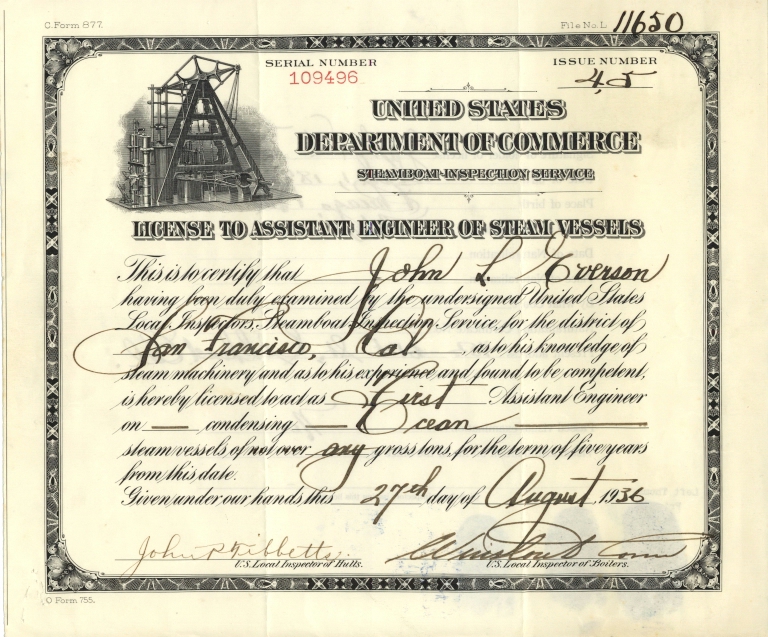 C. Form 877.
File No. L 11650
SERIAL NUMBER
109496
ISSUE NUMBER
4,5
UNITED STATES
DEPARTMENT OF COMMERCE
STEAMBOAT-INSPECTION SERVICE
LICENSE TO ASSISTANT ENGINEER OF STEAM VESSELS
This is to certify that John L. Everson
having been duly examined by the undersigned United States
Local Inspectors, Steamboat-Inspection Service, for the district of
San Francisco, Cal, as to his knowledge of
steam machinery and as to his experience and found to be competent,
is hereby licensed to act as First Assistant Engineer
on — condensing Ocean
steam vessels of not over any gross tons, for the term of five years
from this date.
Given under our hands this 27th day of August, 1936
John P. Tibbetts
U.S. Local Inspector of Hulls.
U.S. Local Inspector of Boilers.
O Form 755.